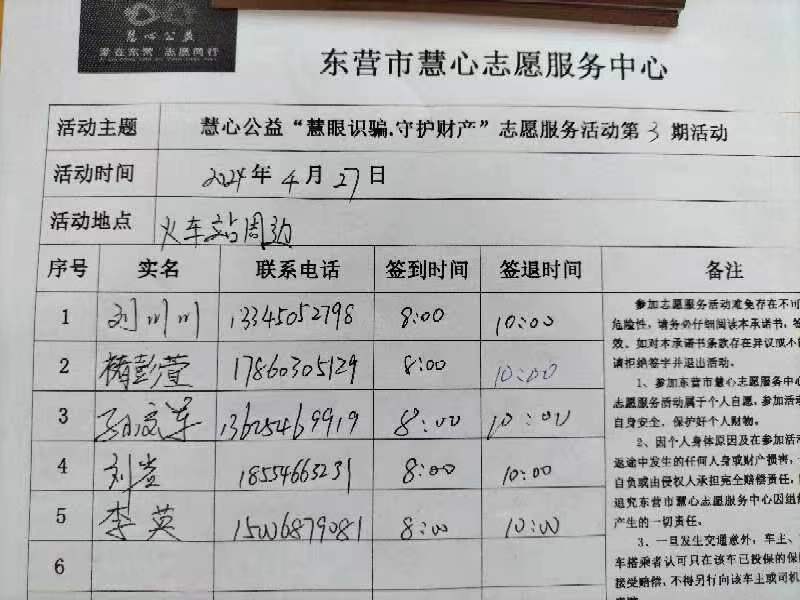 慧心公益
爱在东营 志愿同行
东营市慧心志愿服务中心
活动主题 慧心公益“慧眼识骗.守护财产”志愿服务活动第3期活动
活动时间 2024年4月27日
活动地点 火车站周边
序号 实名 联系电话 签到时间 签退时间 备注
1 刘川川 13345052798 8:00 10:00
2 褚彭萱 17860305129 8:00 10:00
3 孙文军 13625469919 8:00 10:00
4 刘岩 18554663231 8:00 10:00
5 李英 15006879081 8:00 10:00
6
参加志愿服务活动难免存在不可
危险性，请务必仔细阅读本承诺书，签
效。如对本承诺书条款存在异议或不
请拒绝签字并退出活动。
1、参加东营市慧心志愿服务中心
志愿服务活动属于个人自愿，参加活动
自身安全，保护好个人财物。
2、因个人身体原因及在参加活动
返途中发生的任何人身或财产损害，
自负或由侵权人承担完全赔偿责任，
追究东营市慧心志愿服务中心因组
产生的一切责任。
3、一旦发生交通意外，车主、
车搭乘者认可只在该车已投保的保
接受赔偿，不得另行向该车主或司机